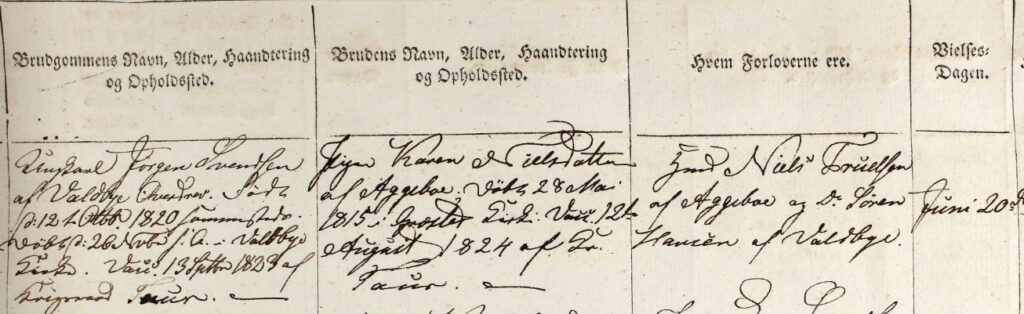 Brudgommens Navn, Alder, Haandtering
og Opholdssted.
Brudens Navn, Alder, Haandtering
og Opholdssted.
Hvem Forloverne ere.
Vielses-
Dagen.
Ungkarl Jørgen Svendsen
af Valdbye Overdrev. Født
d: 12t 1820 sammesteds.
døbt d: 26 Novbr s. A. i Valdbye
Kirke. Vacc. 13 Septbr 1823 af
Taur.
Pigen Karen Nielsdatter
af Aggeboe. døbt 28 Mai
1815 i Græsted Kirke. Vacc. 12t
August 1824 af Kr.
Taur.
Hmd Niels Truelsen
af Aggeboe og Do Søren
Hansen af Valdbye.
Juni 20